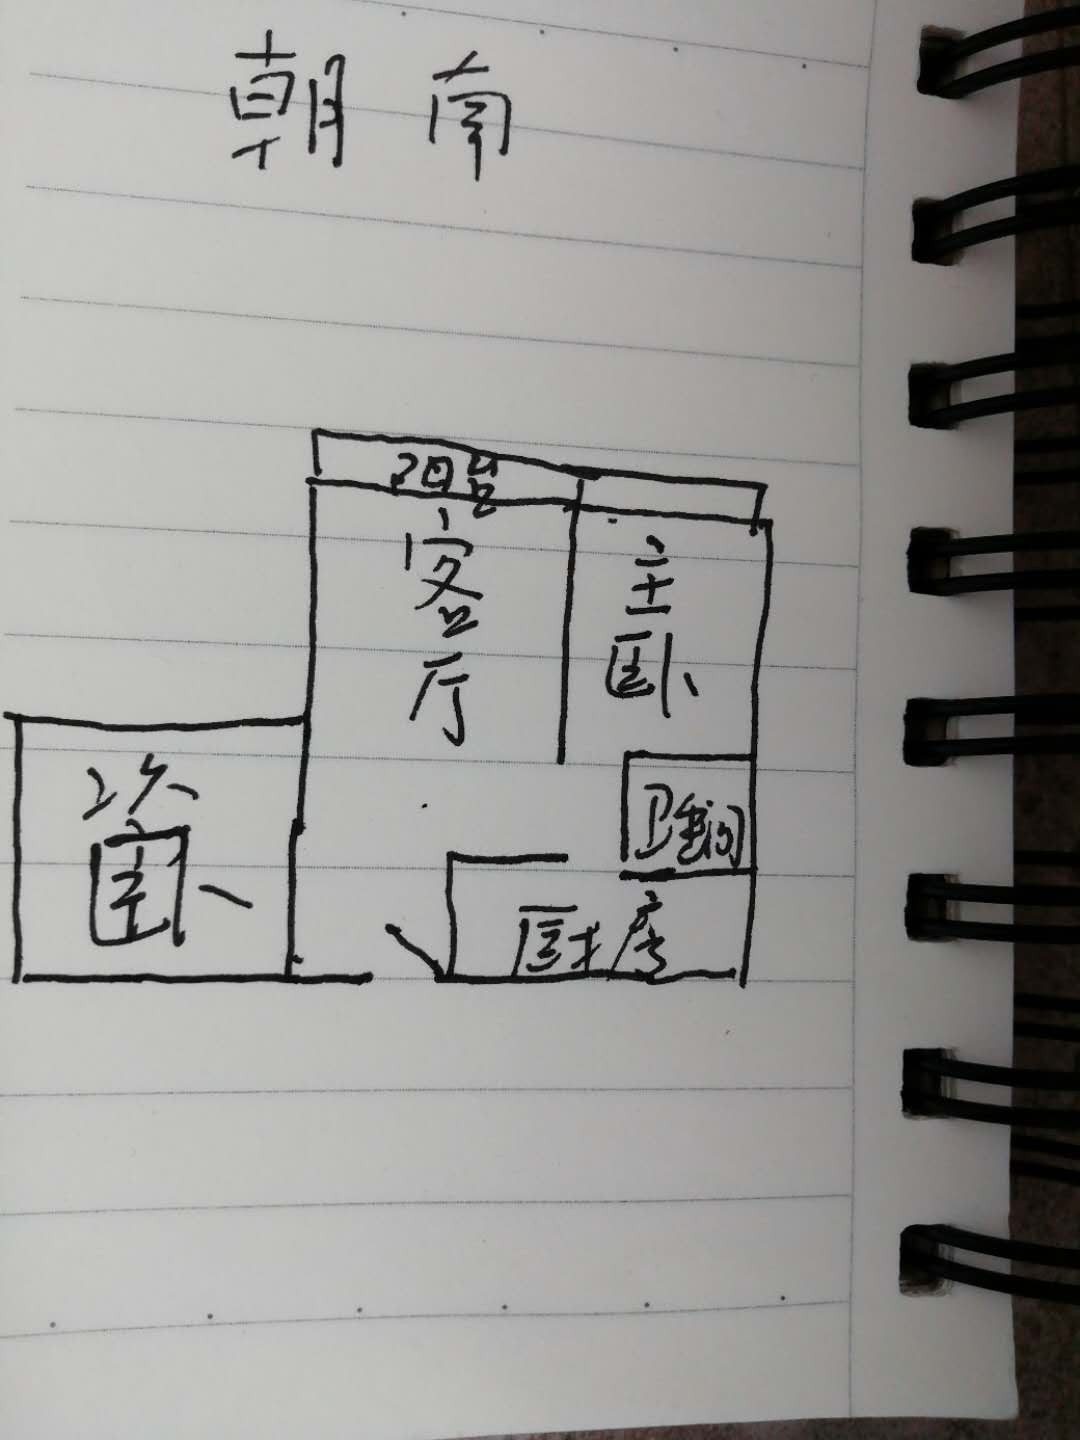 朝南
阳台
客厅
主卧
次卧
卫生间
厨房